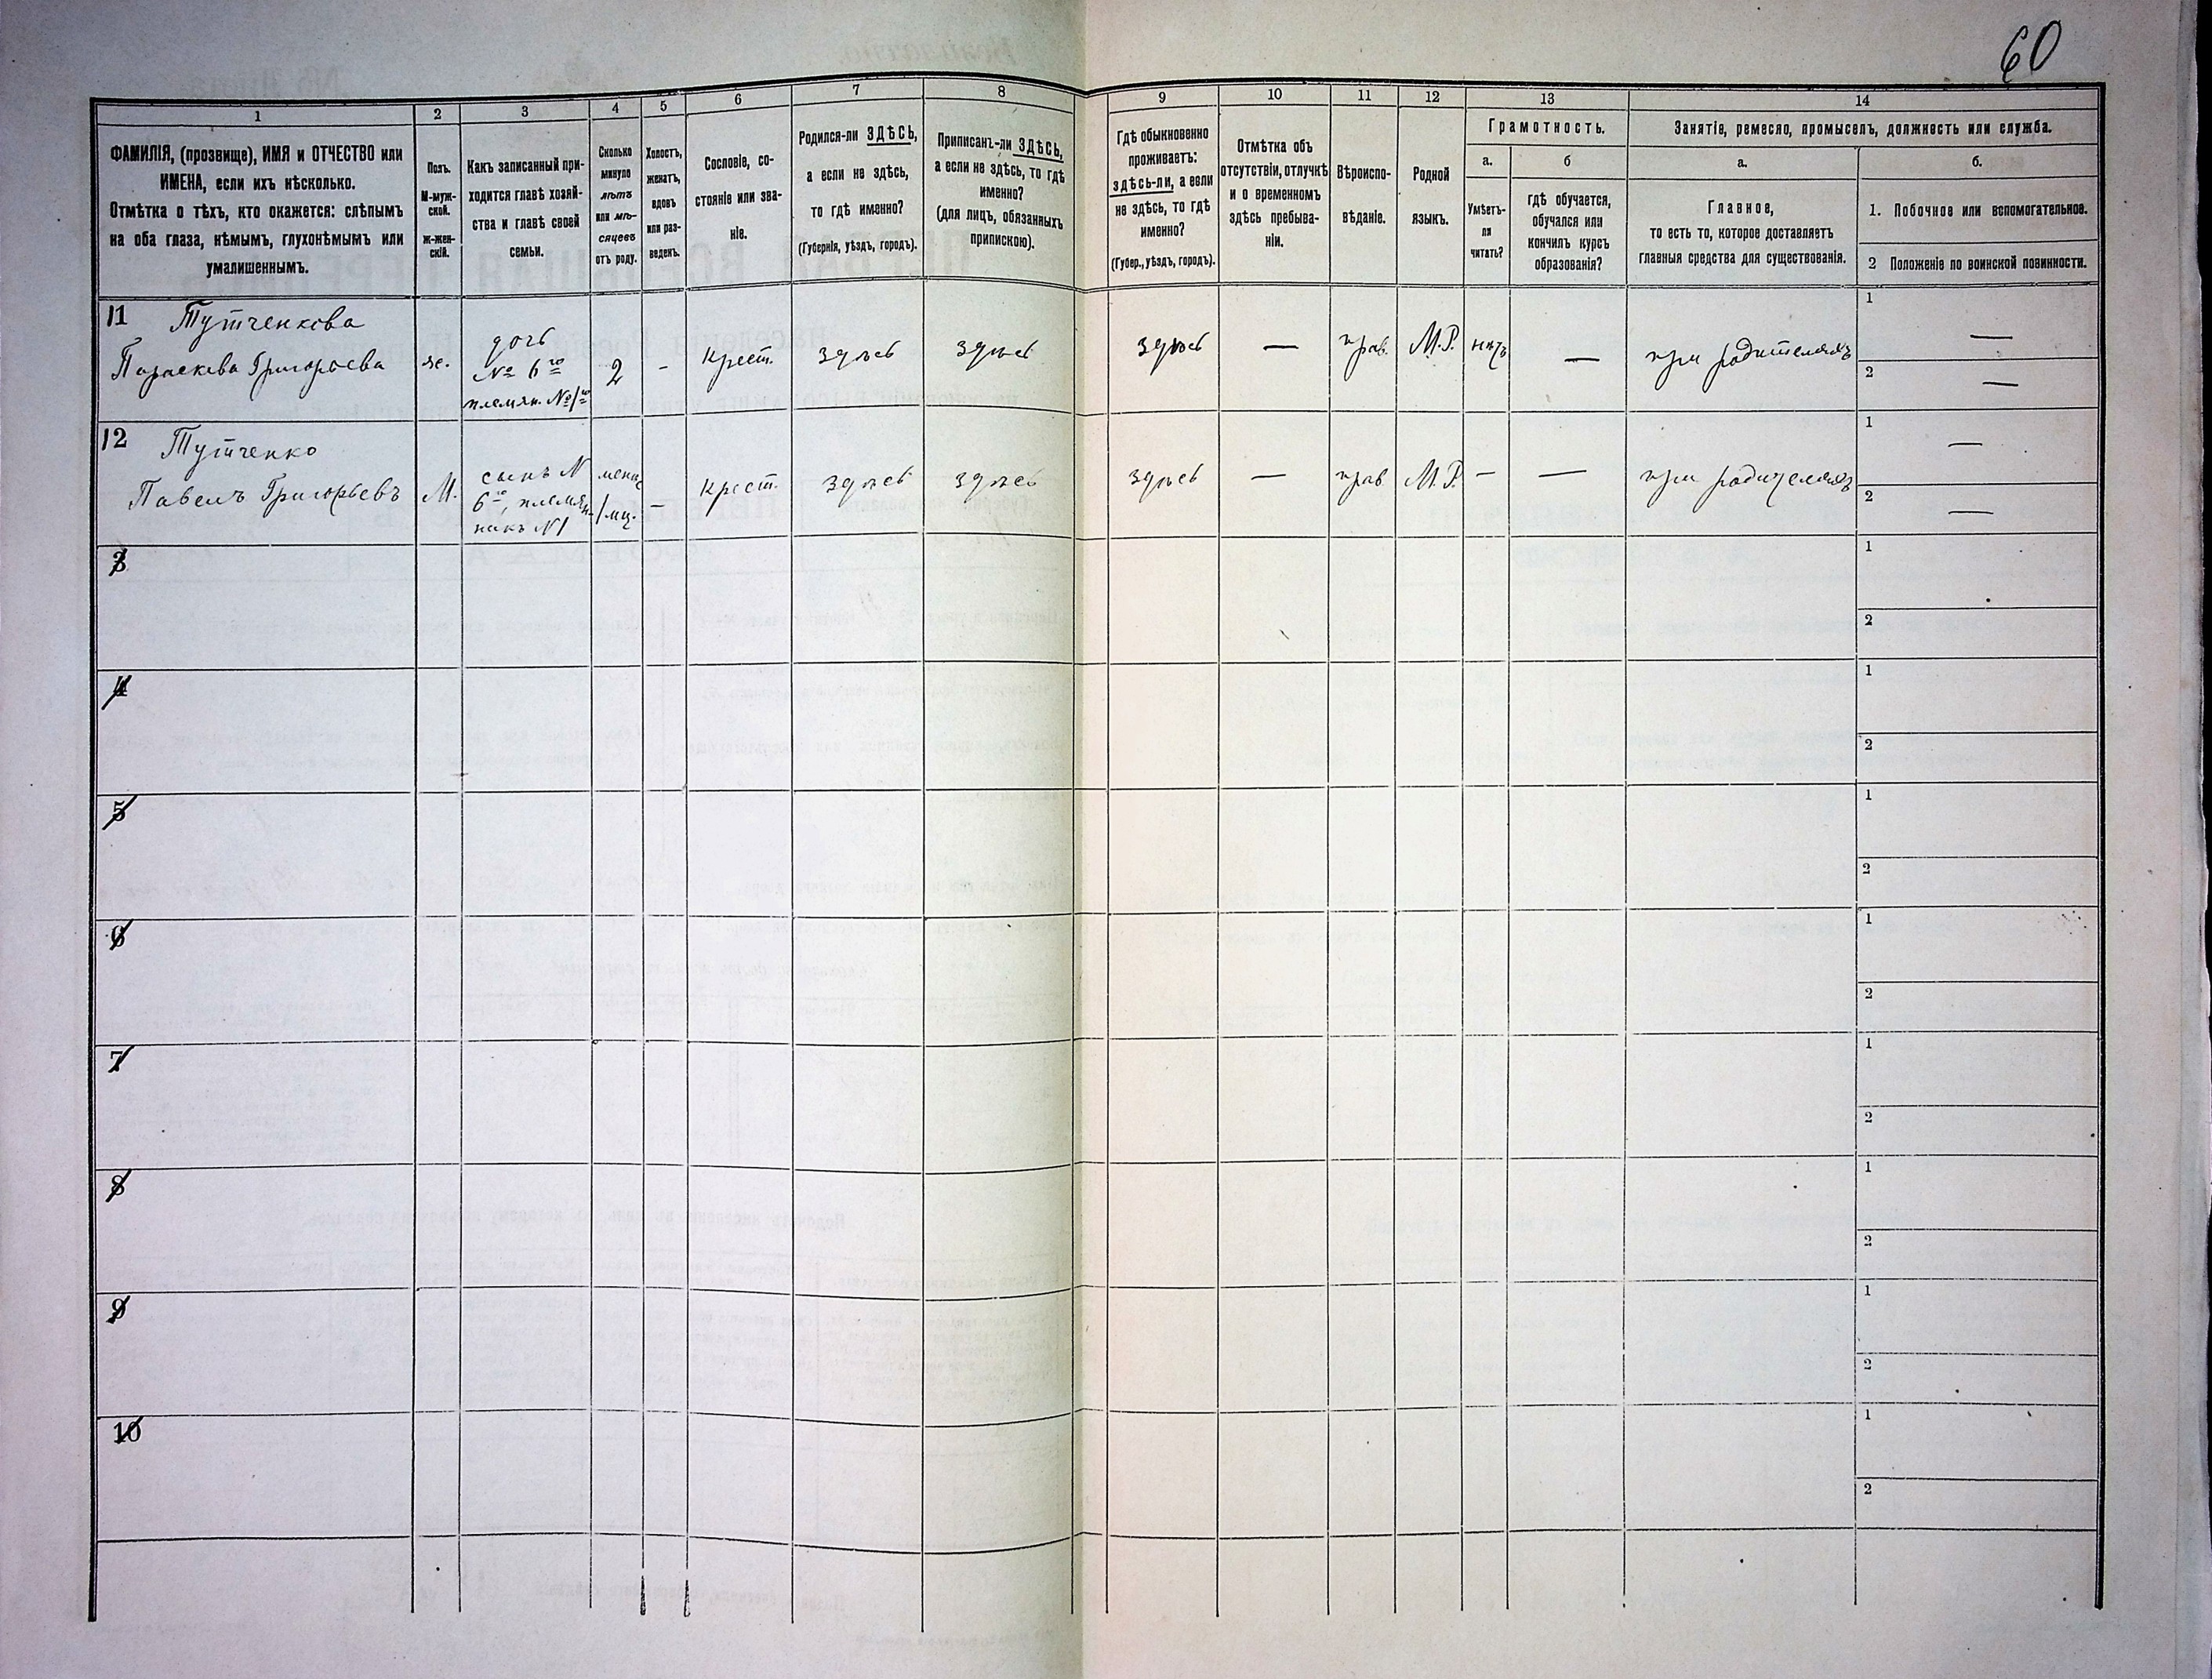 60
1 2 3 4 5 6 7 8 9 10 11 12 13 14
ФАМИЛІЯ, (прозвище), ИМЯ и ОТЧЕСТВО или
ИМЕНА, если ихъ нѣсколько.
Отмѣтка о тѣхъ, кто окажется: слѣпымъ
на оба глаза, нѣмымъ, глухонѣмымъ или
умалишеннымъ.
Полъ.
М-муж-
ской.
ж-жен-
скій.
Какъ записанный при-
ходится главѣ хозяй-
ства и главѣ своей
семьи.
Сколько
минуло
лѣтъ
или мѣ-
сяцевъ
отъ роду.
Холостъ,
женатъ,
вдовъ
или раз-
веденъ.
Сословіе, со-
стояніе или зва-
ніе.
Родился-ли ЗДѢСЬ,
а если не здѣсь,
то гдѣ именно?
(Губернія, уѣздъ, городъ).
Приписанъ-ли ЗДѢСЬ,
а если не здѣсь, то гдѣ
именно?
(для лицъ, обязанныхъ
припискою).
Гдѣ обыкновенно
проживаетъ:
здѣсь-ли, а если
не здѣсь, то гдѣ
именно?
(Губер., уѣздъ, городъ).
Отмѣтка объ
отсутствіи, отлучкѣ
и о временномъ
здѣсь пребыва-
ніи.
Вѣроиспо-
вѣданіе.
Родной
языкъ.
Грамотность.
а.
Умѣетъ-
ли
читать?
б
гдѣ обучается,
обучался или
кончилъ курсъ
образованія?
Занятіе, ремесло, промыселъ, должность или служба.
а.
Главное,
то есть то, которое доставляетъ
главныя средства для существованія.
б.
1. Побочное или вспомогательное.
2 Положеніе по воинской повинности.
11 Тутченкова
Параскева Григорьева
же.
дочь
№ 6го
племян. № 1го
2
-
Крест.
здѣсь
здѣсь
здѣсь
—
прав.
М.Р.
нѣтъ
—
при родителяхъ
1 —
2 —
12 Тутченко
Павелъ Григорьевъ
М.
сынъ N
6го, племян-
никъ N1
менѣе
1 мц.
—
Крест.
здѣсь
здѣсь
здѣсь
—
прав
М.Р.
—
—
при родителяхъ
1 —
2 —
3
1
2
4
1
2
5
1
2
6
1
2
7
1
2
8
1
2
9
1
2
10
1
2